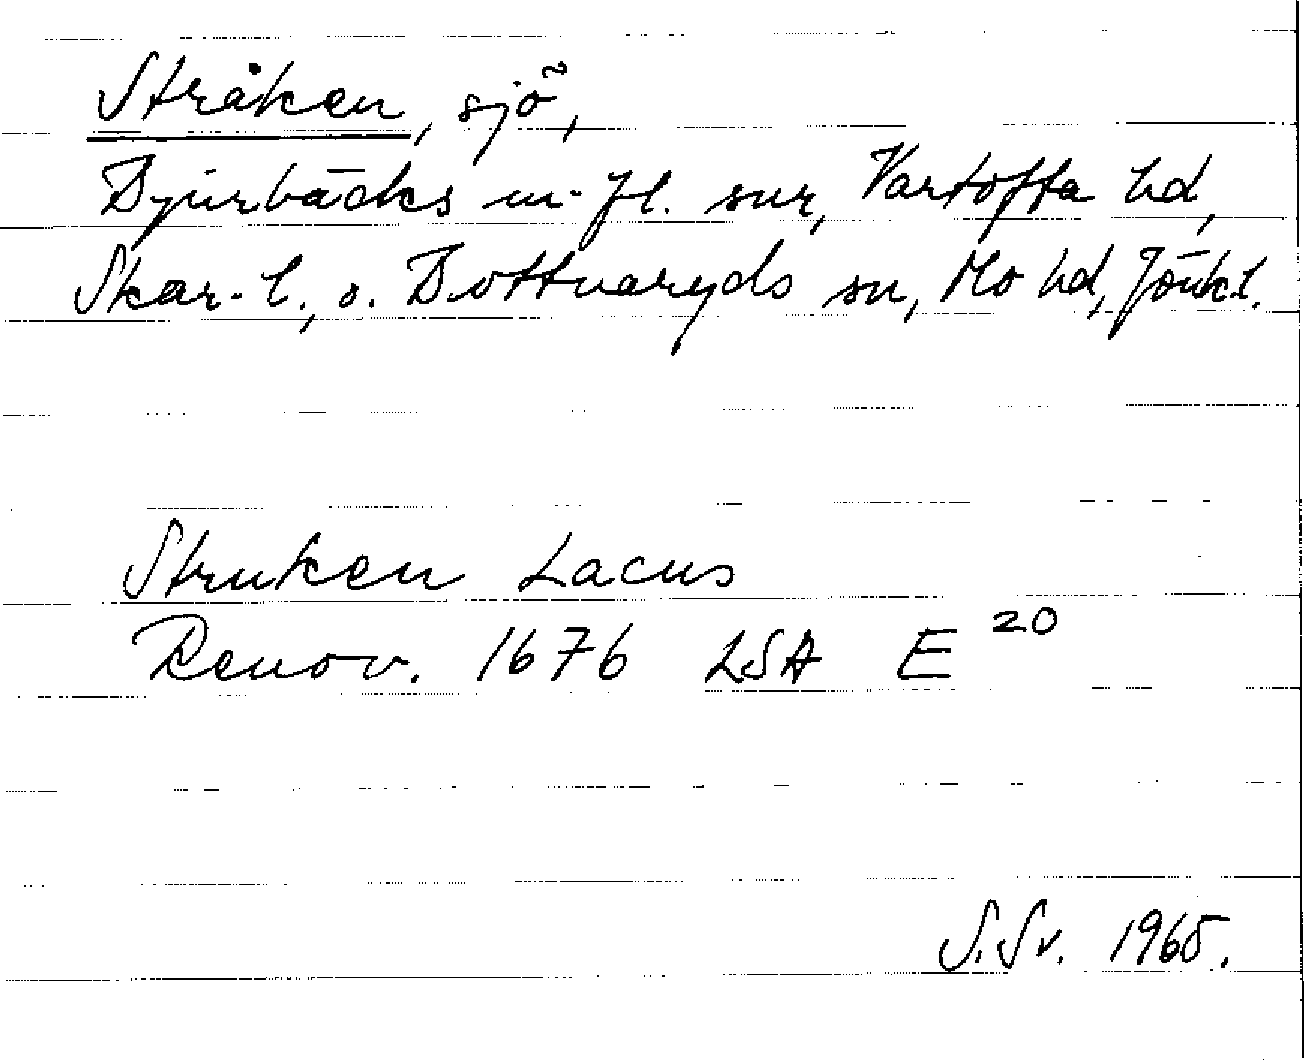 Stråken, sjö,
Djurbäcks m. fl. snr, Vartofta hd,
Skar. l., o. Bottnaryds sn, Mo hd, Jönk.l.
Struken Lacus
Renov. 1676 LSA E 20
S. Sv. 1965.